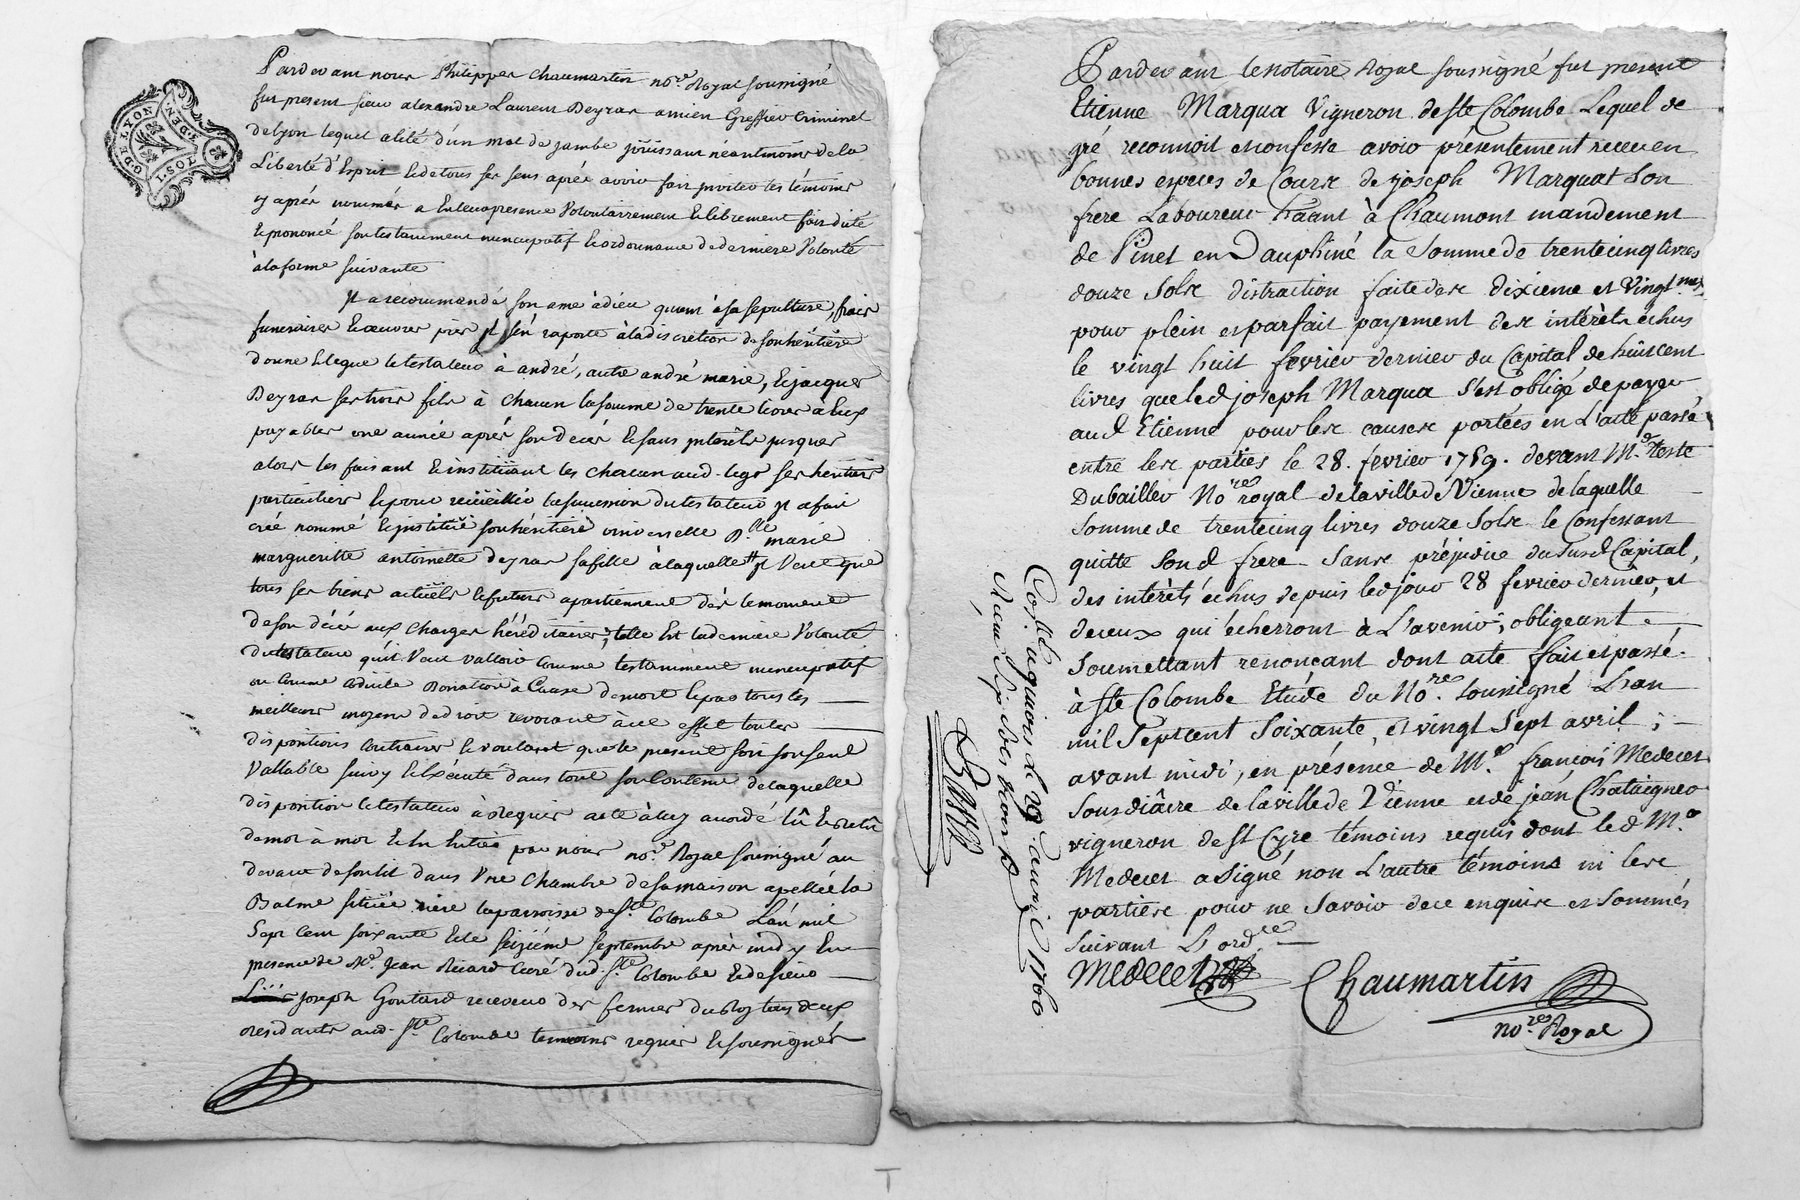 G. DE LYON
1. SOL 8. DEN.
Pardevant nous Philippes Chaumartin no.re Royal soussigné
fut present sieur alexandre Laurent Deyras ancien Greffier Criminel
de lyon lequel alité d'un mal de jambe jöuissant néantmoins de la
Liberté d'Esprit & de tous ses sens aprés avoir fait inviter les témoins
cy aprés nommés a En leur presence Volontairement & librement fait dicté
& prononcé son testament nuncupatif & ordonnance de derniere Volonté
à la forme suivante
Il a recommandé son ame à dieu quant à sa sepulture, frais
funeraires & oeuvres pies il s'en raporte à la discretion de son héritière
donne & legue le testateur à andré, autre andré marie, & jacques
Deyras ses trois fils à chacun la somme de trente livres à Eux
payables une année aprés son decés & sans interêts jusques
alors les faisant & instituant les chacun aud. legs ses heritiers
particuliers & pour recüeillir la succession du testateur il a fait
créé nommé & institué son héritière universelle D.lle marie
margueritte antoinette deyras sa fille à laquelle il Veut que
tous ses biens actüels & futurs apartiennent dès le moment
de son décés aux charges héréditaires, telle Est la derniere Volonté
du testateur qu'il Veut valloir comme testament nuncupatif
ou comme codicile Donation à Cause de mort & par tous les
meilleurs moyens de droit revocant à cet effet toutes
dispositions contraires & voulant que le present soit son seul
Vallable suivy & Exécuté dans tout son Contenu de laquelle
disposition le testateur à requis acte à luy accordé lû & relû
de mot à mot & En Entier par nous no.re Royal soussigné au
devant de son lit dans Une chambre de sa maison apellée la
Balme située riere la parroisse de S.te Colombe L'an mil
Sept Cent soixante & le seizième septembre aprés midy En
presence de M.e Jean Ricard curé dud. S.te Colombe & de sieur
joseph Goutard receveur des fermes du Roy tous deux
residants aud. S.te Colombe temoins requis & soussignés
Pardevant le notaire Royal soussigné fut present
Etienne Marqua Vigneron de Ste Colombe Lequel de
gré reconnoit et confesse avoir présentement receu en
bonnes especes de Cours de joseph Marquat son
frere Laboureur ha'ant à Chaumont mandement
de Pinet en Dauphiné la Somme de trente cinq livres
douze Sols distraction faite des dixieme et Vingt.mes
pour plein et parfait payement des intérêts échus
le vingt huit fevrier dernier du Capital de huit cent
livres que led joseph Marqua s'est obligé de payer
aud Etienne pour les causes portées en L'acte passé
entre les parties le 28. février 1759. devant M.e Teste
Dubailler No.re royal de la ville de Vienne de laquelle
Somme de trente cinq livres douze Sols le Confessant
quitte son d frere Sans préjudice du susd Capital,
des intérêts échus depuis led jour 28 fevrier dernier, et
de ceux qui écherront à L'avenir; obligeant
Soumettant renonçant dont acte fait et passé
à Ste Colombe Etude du No.re soussigné L'an
mil Sept cent Soixante, et vingt Sept avril;
avant midi, en présence de M.e françois Medecet
Sousdiâcre de la ville de Vienne et de jean Chataignier
vigneron de St Cyre témoins requis dont led M.e
Medecet a signé non L'autre témoins ni les
parties pour ne Savoir de ce enquis et sommés
suivant L'ord.ce
Medecet
Chaumartin
no.re Royal
1760